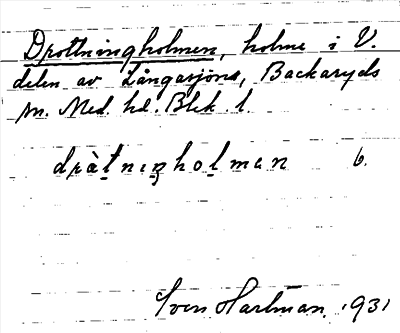 Drottningholmen, holme i V.
delen av Långasjöns, Backaryds
sn. Med. hd. Blek. l.
dràtnıŋholmən 6.
Sven Hartman. 1931